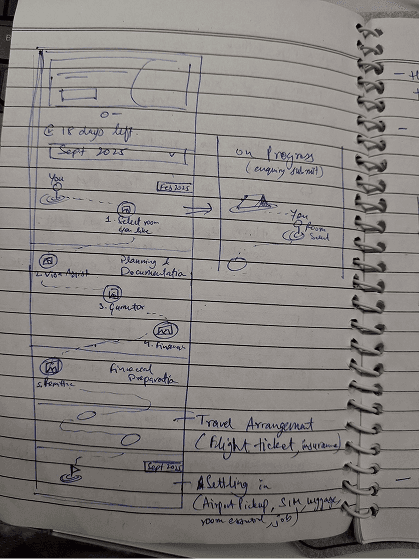 18 days left
Sept 2025
You
Feb 2025
1. Select room
you like
on Progress
(enquiry submit)
You
Room
Select
2. Visa Assist
Planning &
Documentation
3. Guarantor
4. Finance
5. Remittance
Financial
Preparation
Travel Arrangement
(Flight ticket, insurance)
Sept 2025
Settling in
(Airport Pickup, SIM, luggage,
room essential, job)